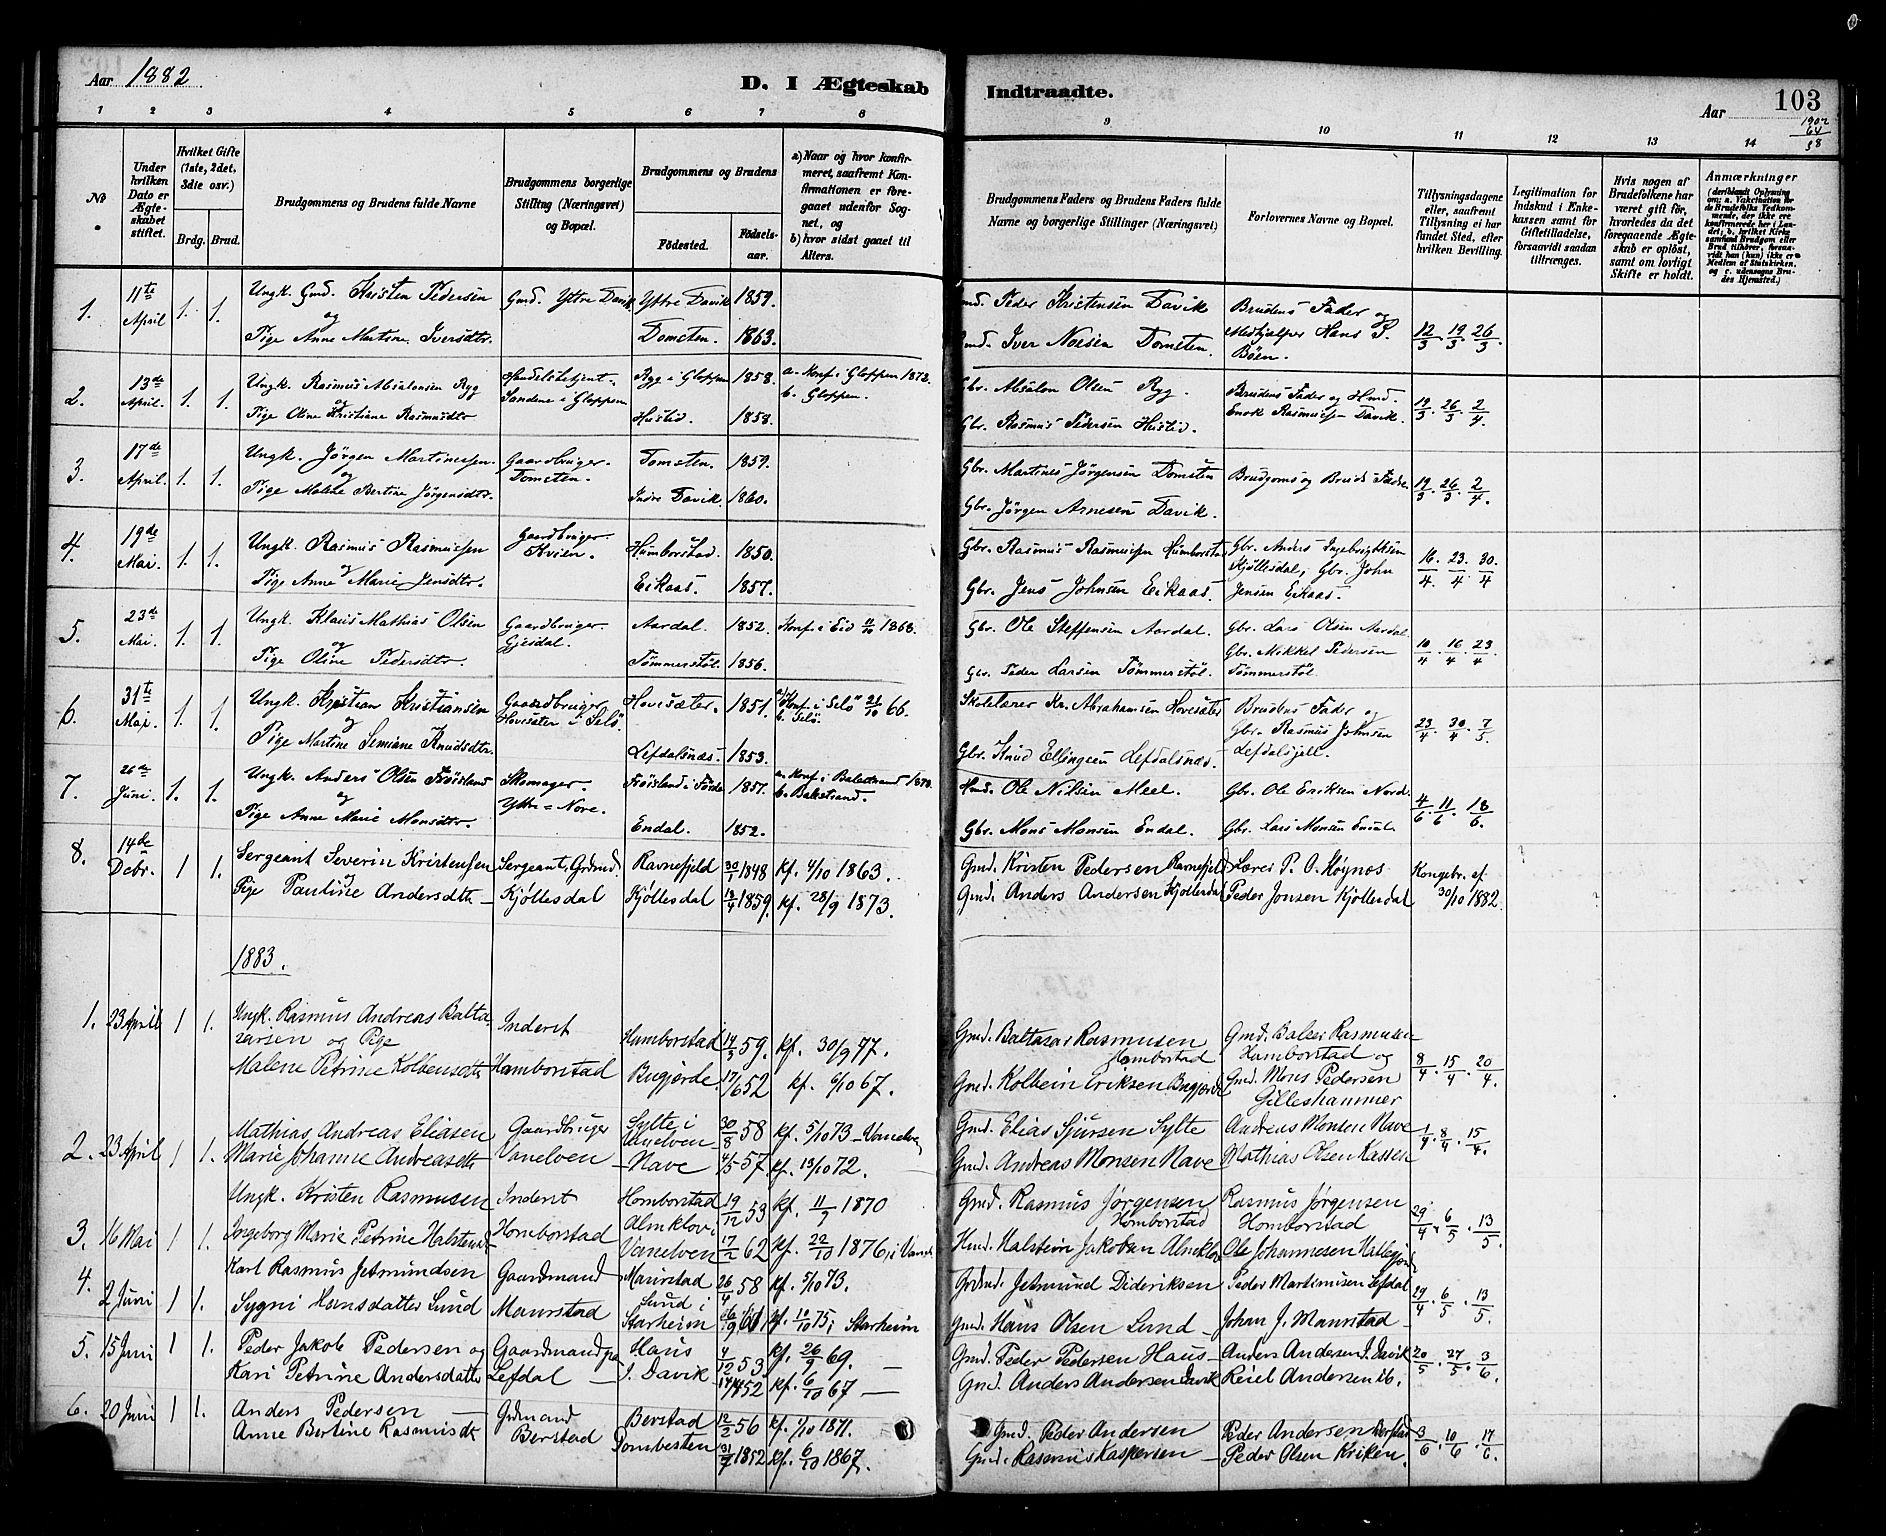 Aar 1882
D. I Ægteskab
Indtraadte.
Aar
103
1902
64
38
1 2 3 4 5 6 7 8
9 10 11 12 13 14
No.
Under hvilken Dato er Ægteskabet stiftet.
Hvilket Gifte (1ste, 2det, 3die osv.)
Brdg. Brud.
Brudgommens og Brudens fulde Navne
Brudgommens borgerlige Stilling (Næringsvei) og Bopæl.
Brudgommens og Brudens
Fødested.
Fødselsaar.
a) Naar og hvor konfirmeret, saafremt Konfirmationen er foregaaet udenfor Sognet, og
b) hvor sidst gaaet til Alters.
Brudgommens Faders og Brudens Faders fulde Navne og borgerlige Stillinger (Næringsvei)
Forlovernes Navne og Bopæl.
Tillysningsdagene eller, saafremt Tillysning ei har fundet Sted, efter hvilken Bevilling.
Legitimation for Indskud i Enkekassen samt for Giftetilladelse, forsaavidt saadan tiltrænges.
Hvis nogen af Brudefolkene har været gift før, hvorledes da det foregaaende Ægteskab er opløst, samt om lovligt Skifte er holdt.
Anmærkninger
(deriblandt Oplysning om: a. Vakcination for de Brudefolks Vedkommende, der ikke ere konfirmerede her i Landet; b. hvilket Kirkesamfund Brudgom eller Brud tilhører, forsaavidt han (hun) ikke er Medlem af Statskirken, og c. udensogns Brudes Hjemsted.)
1. 11te April 1. 1. Ungk. Gmd. Karsten Pedersen Gmd. Yttre Davik Yttre Davik 1859. Gmd. Peder Kristensen Davik Brudens Fader og
og
Pige Anne Martine Iversdtr. Domsten. 1863. Gmd. Iver Noesen Domsten. Medhjælper Hans P. Böen. 12/3. 19/3. 26/3.
2. 13de April. 1. 1. Ungk. Rasmus Absalonsen Ryg Handelsbetjent. Sandene i Gloppen Ryg i Gloppen 1858. a. Konf. i Gloppen 1873. b. Gloppen. Gbr. Absalon Olsen Ryg. Brudens Fader og Hmd.
og
Pige Oline Kristiane Rasmusdtr Husted. 1858. Gbr. Rasmus Pedersen Husted. Enok Rasmussen Davik. 19/3 26/3 2/4.
3. 17de April. 1. 1. Ungk. Jörgen Martinussen. Gaardbruger. Domsten. Domsten. 1859. Gbr. Martines Jörgensen Domsten Brudgoms og Bruds Fædre. 19/3. 26/3. 2/4.
og
Pige Malene Bertine Jörgensdtr. Indre Davik. 1860. Gbr. Jörgen Arnesen Davik.
4. 19de Mai. 1. 1. Ungk. Rasmus Rasmussen Gaardbruger. Kvien. Humborstad. 1850. Gbr. Rasmus Rasmussen Humborstad Gbr. Anders Ingebrigtsen
og
Pige Anne Marie Jensdtr. Eikaas. 1857. Gbr. Jens Johnsen Eikaas. Kjöllesdal, Gbr. John Jensen Eikaas. 16/4. 23/4. 30/4
5. 23de Mai. 1. 1. Ungk. Klaus Mathias Olsen Gaardbruger. Gjesdal. Aardal. 1852. Konf. i Eid 11/10 1868. Gbr. Ole Steffensen Aardal. Gbr. Lars Olsen Aardal.
og
Pige Oline Pedersdtr. Tömmerstöl. 1856. Gbr. Peder Larsen Tömmerstöl. Gbr. Mikkel Pedersen Tömmerstöl. 10/4. 16/4. 23/4.
6. 31te Mai. 1. 1. Ungk. Kristian Kristiansen Gaardbruger Hovesæter i Selö. Hovesæter. 1851. a) Konf. i Selö 21/10 66. b. Selö. Skolelærer Kr. Abrahamsen Hovesæter Brudens Fader og
og
Pige Martine Semiane Knudsdtr. Lefdalsnæs. 1853. Gbr. Knud Ellingsen Lefdalsnæs. Gbr. Rasmus Johnsen Lefdalsfjell. 23/4. 30/4. 7/5.
7. 26de Juni. 1. 1. Ungk. Anders Olsen Fröisland Skomager. Yttre-Nore. Fröisland i Förde 1857. a. Konf. i Balestrand 1873. b. Balestrand. Hmd. Ole Nilsen Meel. Gbr. Ole Eriksen Nord.
og
Pige Anne Marie Monsdtr. Endal. 1852. Gbr. Mons Monsen Endal. Gbr. Lars Monsen Endal. 4/6. 11/6. 18/6.
8. 14de Debr. 1 1. Sergeant Severin Kristensen Sergeant, Grdmd. Ravnefjeld 30/1 1848 kf. 4/10 1863. Gmd. Kristen Pedersen Ravnefjeld Lærer P. O. Høynes Kongebr. af
og
Pige Pauline Andersdtr – Kjöllesdal Kjöllesdal 13/4 1859. kf. 28/9 1873. Gmd. Anders Andersen Kjöllesdal Peder Jonsen Kjöllesdal 30/10 1882.
1883.
1. 23 April 1 1. Ungk. Rasmus Andreas Balta- Inderst Gmd. Baltazar Rasmusen Gmd. Balser Rasmusen
zarsen og Pige Hamborstad 14/3 59. kf. 30/9 77. Hamborstad Hamborstad og
Malene Petrine Kolbensdtr Hamborstad Bugjerde. 17/6 52 kf. 6/10 67. Gmd. Kolbein Eriksen Bugjerde Gmd. Mons Pedersen Gilleshammer 8/4. 15/4. 20/4.
2. 23 April 1 1. Mathias Andreas Eliasen Gaardbruger Sylte i Vanelven 30/8 58 kf. 5/10 73 – Vanelven Gmd. Elias Sjursen Sylte Andreas Monsen Nave
Marie Johanne Andreasdtr Vanelven – Nave 4/5 57. kf. 13/10 72. Gmd. Andreas Monsen Nave Mathias Olsen Kassen 1/4 8/4. 15/4.
3. 16 Mai 1 1. Ungk. Kristen Rasmusen Inderst Homborstad 19/12 53 kf. 11/9 1870 Gmd. Rasmus Jørgensen Homborstad Rasmus Jørgensen Homborstad
Ingeborg Marie Petrine Halstensd. Homborstad Almklov i Vanelven 17/2 62 kf. 22/10 1876, i Vanel. Hmd. Halstein Jakobsen Almklov Ole Johannesen 29/4. 6/5. 13/5.
4. 2 Juni 1 1. Karl Rasmus Jetmundsen Gaardmand Maurstad 26/4 58 kf. 5/10 73. Grdmd. Jetmund Dideriksen Peder Martinusen Lefdal
Sygni Hansdatter Lund Maurstad Lund i Starheim 61 kf. 10/10 75 i Starheim Gmd. Hans Olsen Lund – Johan J. Maurstad 29/4. 6/5. 13/5.
5. 15 Juni 1 1. Peder Jakob Pedersen og Gaardmand pa Haus 4/12 53 kf. 26/9 69. – Gmd. Peder Pedersen Haus – Anders Andersen I. Davik
Kari Petrine Andersdatter Lefdal – I. Davik 52 kf. 6/10 67 – Gmd. Anders Andersen Davik Reiel Andersen ib. 20/5. 27/5. 3/6
6. 20 Juni 1 1. Anders Pedersen – Grdmand Berstad 12/2 56 kf. 1/10 1871. Gmd. Peder Andersen Peder Andersen Berstad
Anne Bertine Rasmusdtr Berstad Dombesten 31/7 1852 kf. 6/10 1867. Gmd. Rasmus Kaspersen – Peder Olsen Kriken. 3/6. 10/6. 17/6.